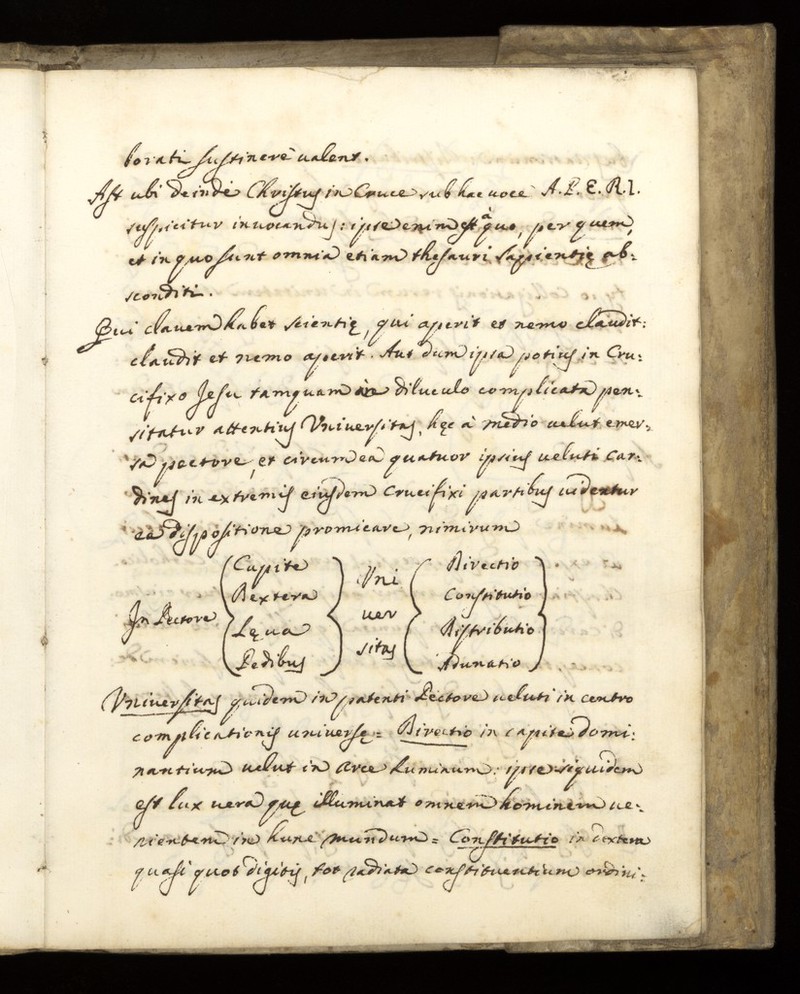 borati sustinere ualent.
Ast ubi deinde Christus in Cruce sub hac uoce A. P. E. R. I.
suspicitur inuocandus: ipse enim est à quo, per quem,
et in quo sunt omnia etiam thesauri Sapientię ab:
sconditi.
Qui clauem habet scientię, qui aperit et nemo claudit:
claudit et nemo aperit. Aut dum ipsa potius in Cru:
cifixo Jesu tamquam in diluculo complicata pen:
sitatur attentius Vniuersitas, hęc à medio uelut emer:
sa pectore, et circum ea quatuor ipsius ueluti Car:
dines in extremis eiusdem Crucifixi partibus uidentur
ea dispositione promicare, nimirum
In Pectore { Capite Dextera Lęua Pedibus } Vni uer sitas { Directio Constitutio Distributio Adunatio }
Vniuersitas quidem in patenti Pectore ueluti in centro
complicationis uniuersę = Directio in capite domi:
nantium uelut in Arce luminum: ipse siquidem
est lux uera quę illuminat omnem hominem ue:
nientem in hunc mundum = Constitutio in dextera
quasi quot digitis, tot radiata constituentium ordini: